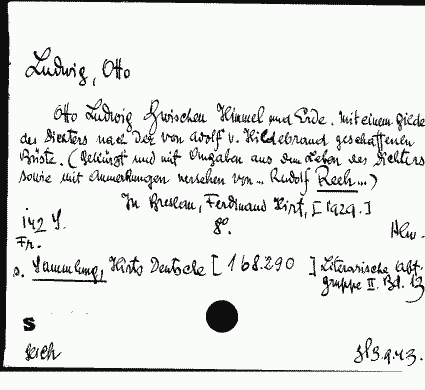 Ludwig, Otto
Otto Ludwig Zwischen Himmel und Erde. Mit einem Bilde
des Dichters nach der von Adolf v. Hildebrand geschaffenen
Büste. (Gekürzt und mit Angaben aus dem Leben des Dichters
sowie mit Anmerkungen versehen von... Rudolf Reeh...)
In Breslau, Ferdinand Hirt, [1929.]
142 S. 8°. Hlw.
Fr.
s. Sammlung, Hirts Deutsche [168.290] Literarische Abt.
gruppe II. Bd. 13
S